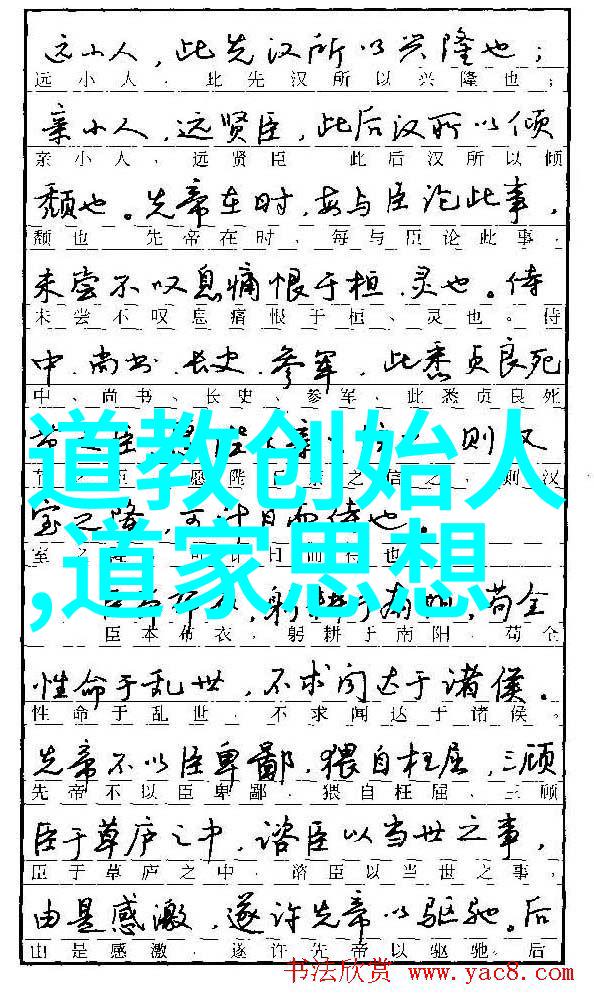 远小人，此先汉所以兴隆也；
远小人，此先汉所以兴隆也；
亲小人，远贤臣，此后汉所以倾
亲小人，远贤臣 此后汉所以倾
颓也。先帝在时，每与臣论此事，
颓也 先帝在时，每与臣论此事，
未尝不叹息痛恨于桓、灵也。侍
未尝不叹息痛恨于桓、灵也。侍
中、尚书、长史、参军，此悉贞良死
中、尚书、长史、参军，此悉贞良死
则汉
之信之，则汉
道教创始人
室之隆，可计日而待也。
室之隆 计日而待也
,道家思想
臣本布衣，躬耕于南阳，苟全
臣本布衣，躬耕于南阳，苟全
性命于乱世，不求闻达于诸侯。
性命于乱世，不求闻达于诸侯。
先帝不以臣卑鄙，猥自枉屈，三顾
先帝不以臣卑鄙，猥自枉屈、三顾
臣于草庐之中，谘臣以当世之事，
臣于草庐之中，谘臣以当世之事，
由是感激，遂许先帝以驱驰。后
由是感激，遂许先帝以驱驰。后
书法欣赏 www.yac8.com